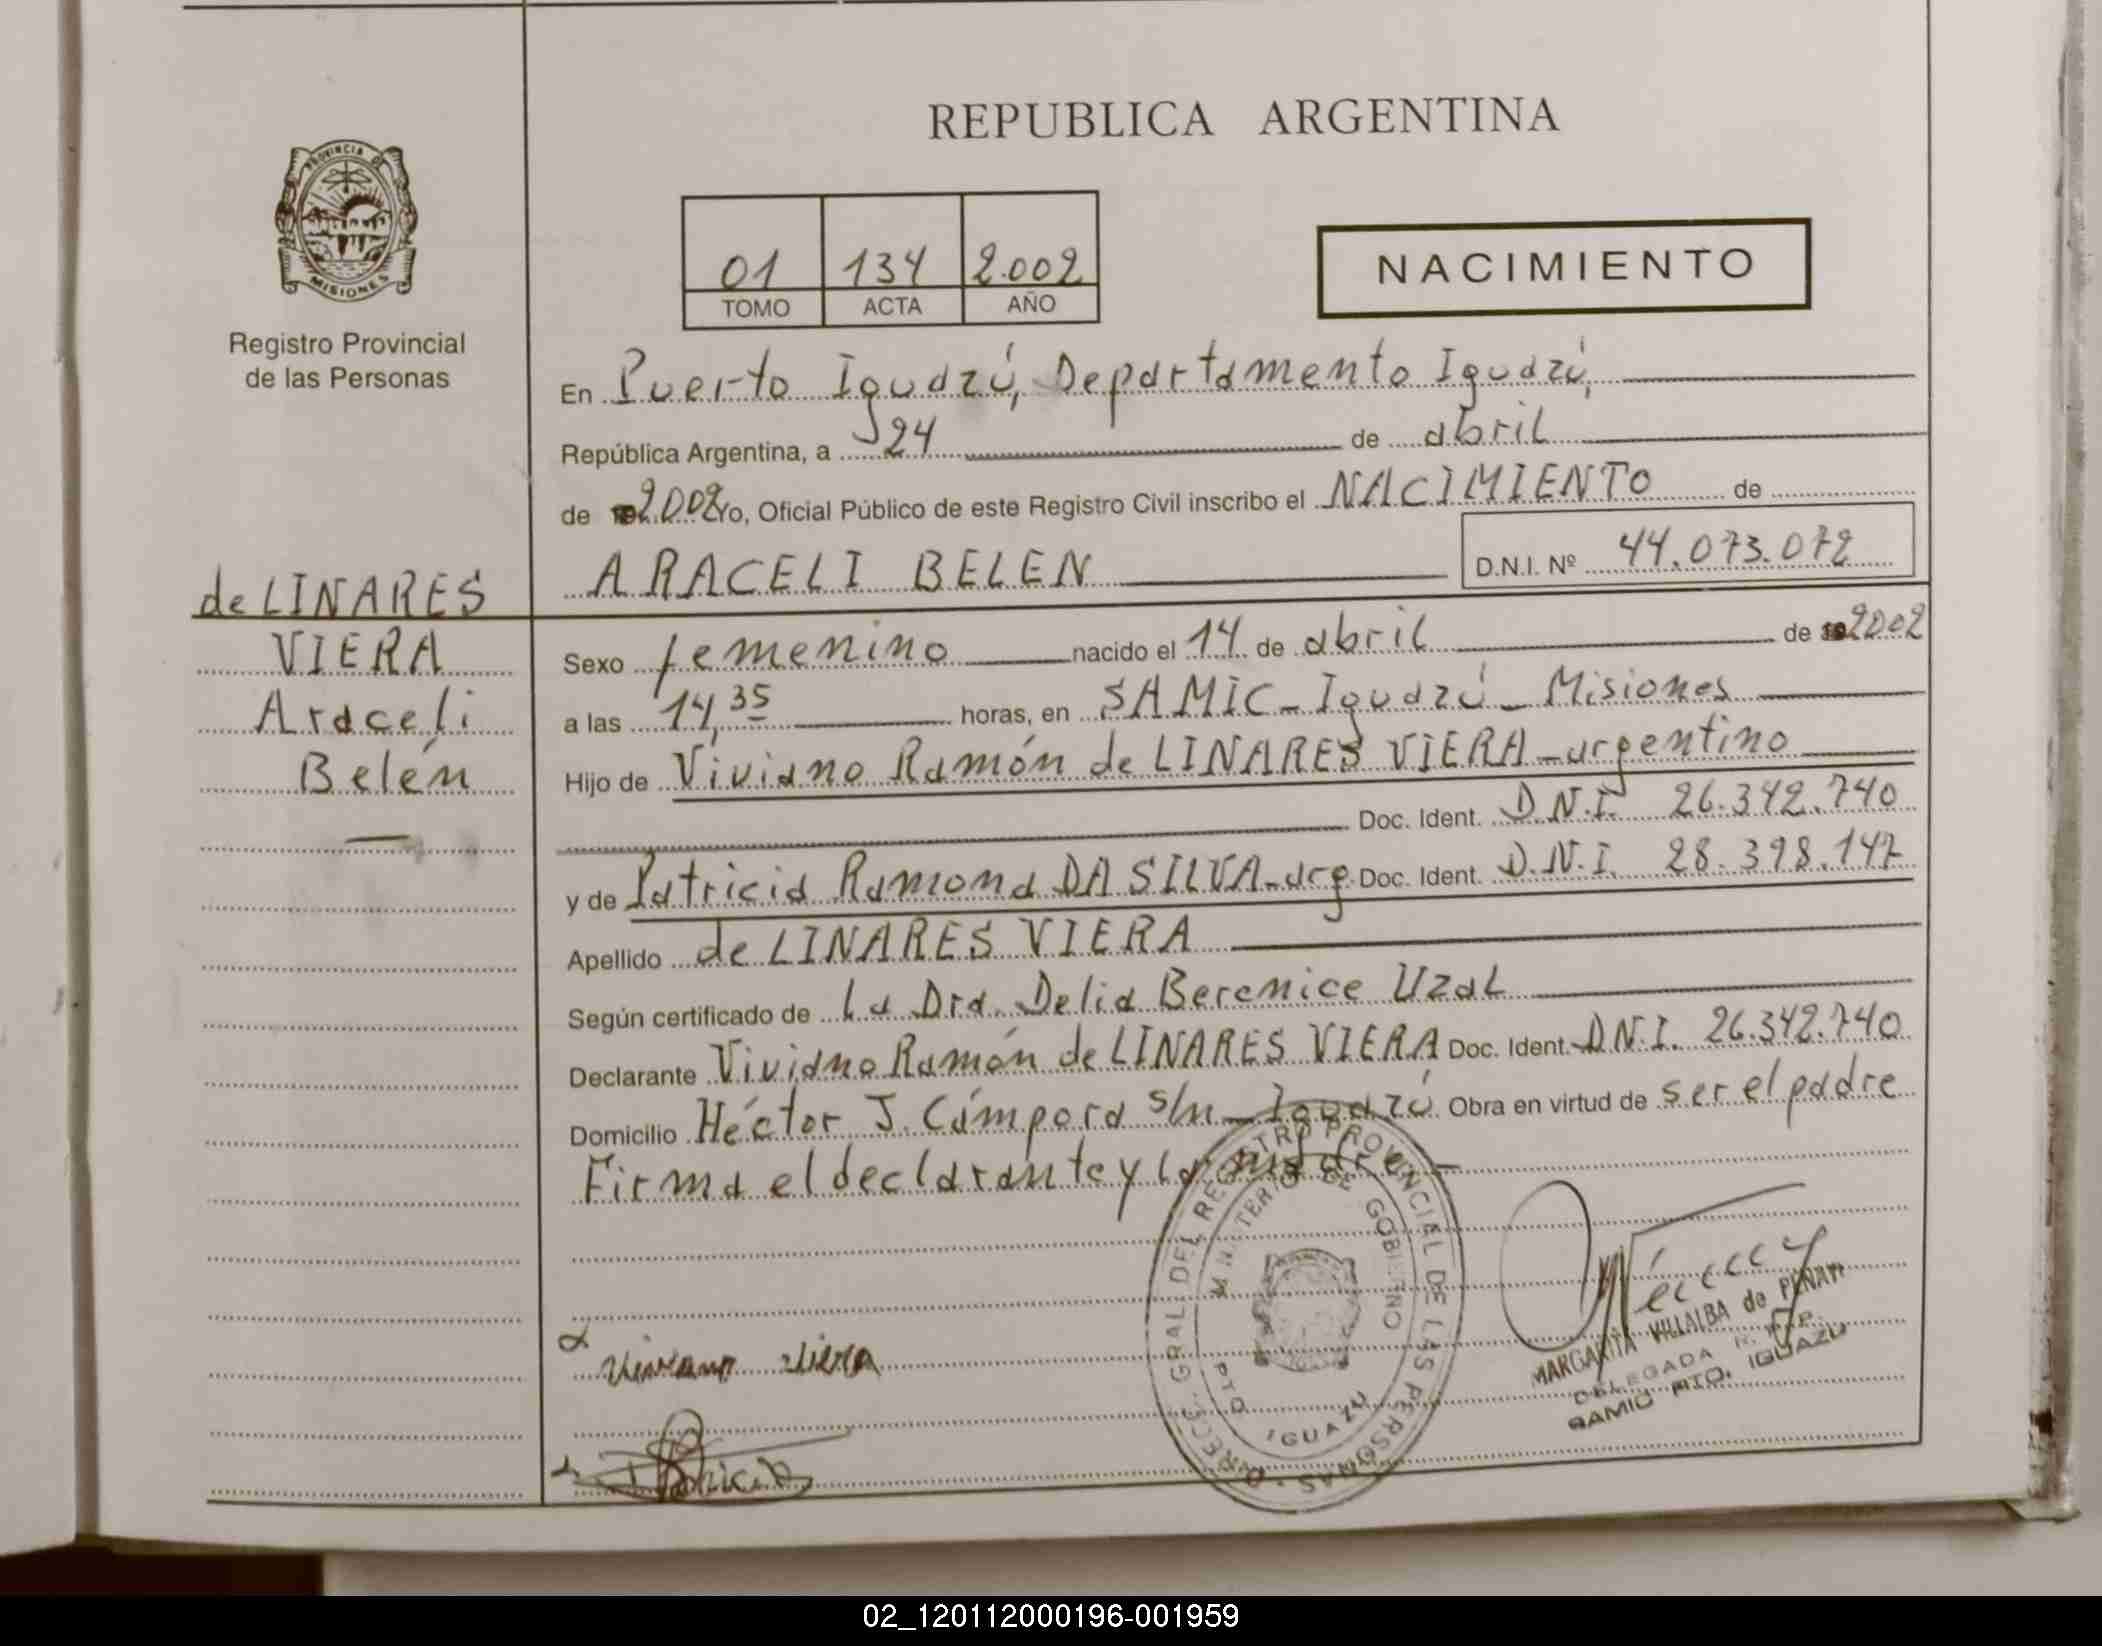 REPUBLICA ARGENTINA
PROVINCIA DE
MISIONES
Registro Provincial
de las Personas
01 134 2.002
TOMO ACTA AÑO
NACIMIENTO
En Puerto Iguazú, Departamento Iguazú,
República Argentina, a 24 de abril
de 2002 yo, Oficial Público de este Registro Civil inscribo el NACIMIENTO de
ARACELI BELEN D.N.I. Nº 44.073.072
de LINARES
VIERA
Araceli
Belén
Sexo femenino nacido el 14 de abril de 2002
a las 14,35 horas, en SAMIC - Iguazú - Misiones
Hijo de Viviano Ramón de LINARES VIERA - argentino
Doc. Ident. D.N.I. 26.342.740
y de Patricia Ramona DA SILVA - arg. Doc. Ident. D.N.I. 28.398.147
Apellido de LINARES VIERA
Según certificado de La Dra. Delia Berenice Uzal
Declarante Viviano Ramón de LINARES VIERA Doc. Ident. D.N.I. 26.342.740
Domicilio Héctor J. Cámpora s/n - Iguazú Obra en virtud de ser el padre
Firma el declarante y la madre.
DIRECC. GRAL. DEL REGISTRO PROVINCIAL DE LAS PERSONAS
MINISTERIO DE GOBIERNO
PTO. IGUAZU
Viviano Viera
MARGARITA VILLALBA de
DELEGADA R.P.P.
SAMIC PTO. IGUAZU
Patricia
02_120112000196-001959